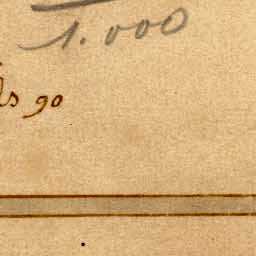 1.000
ds 90